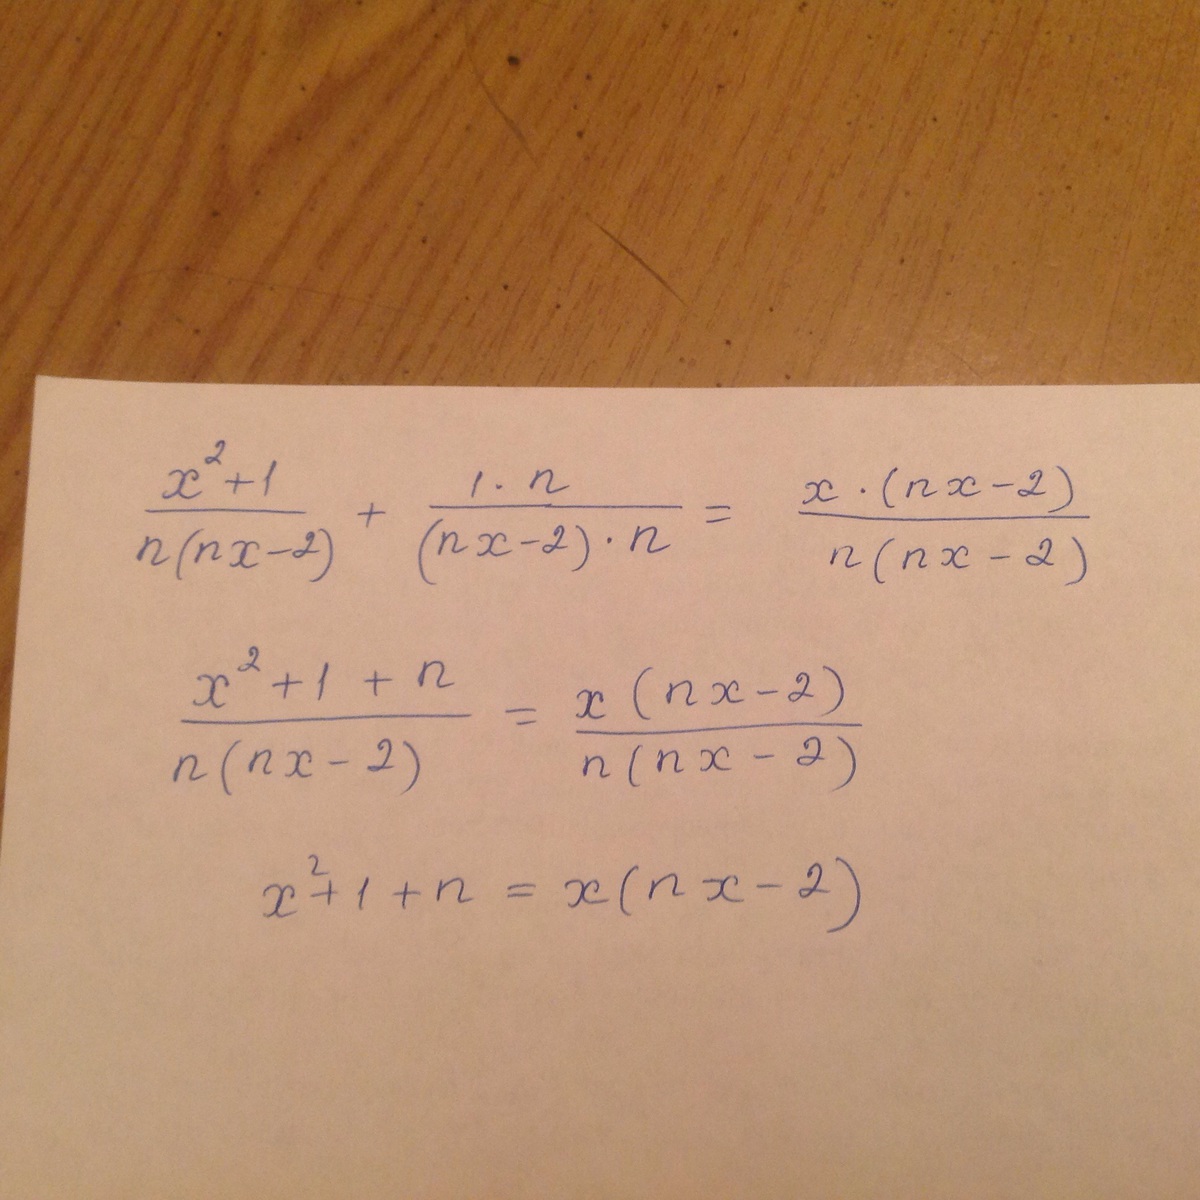 (x²+1)/(n(nx-2)) + (1·n)/((nx-2)·n) = (x·(nx-2))/(n(nx-2))
(x²+1+n)/(n(nx-2)) = (x(nx-2))/(n(nx-2))
x²+1+n = x(nx-2)